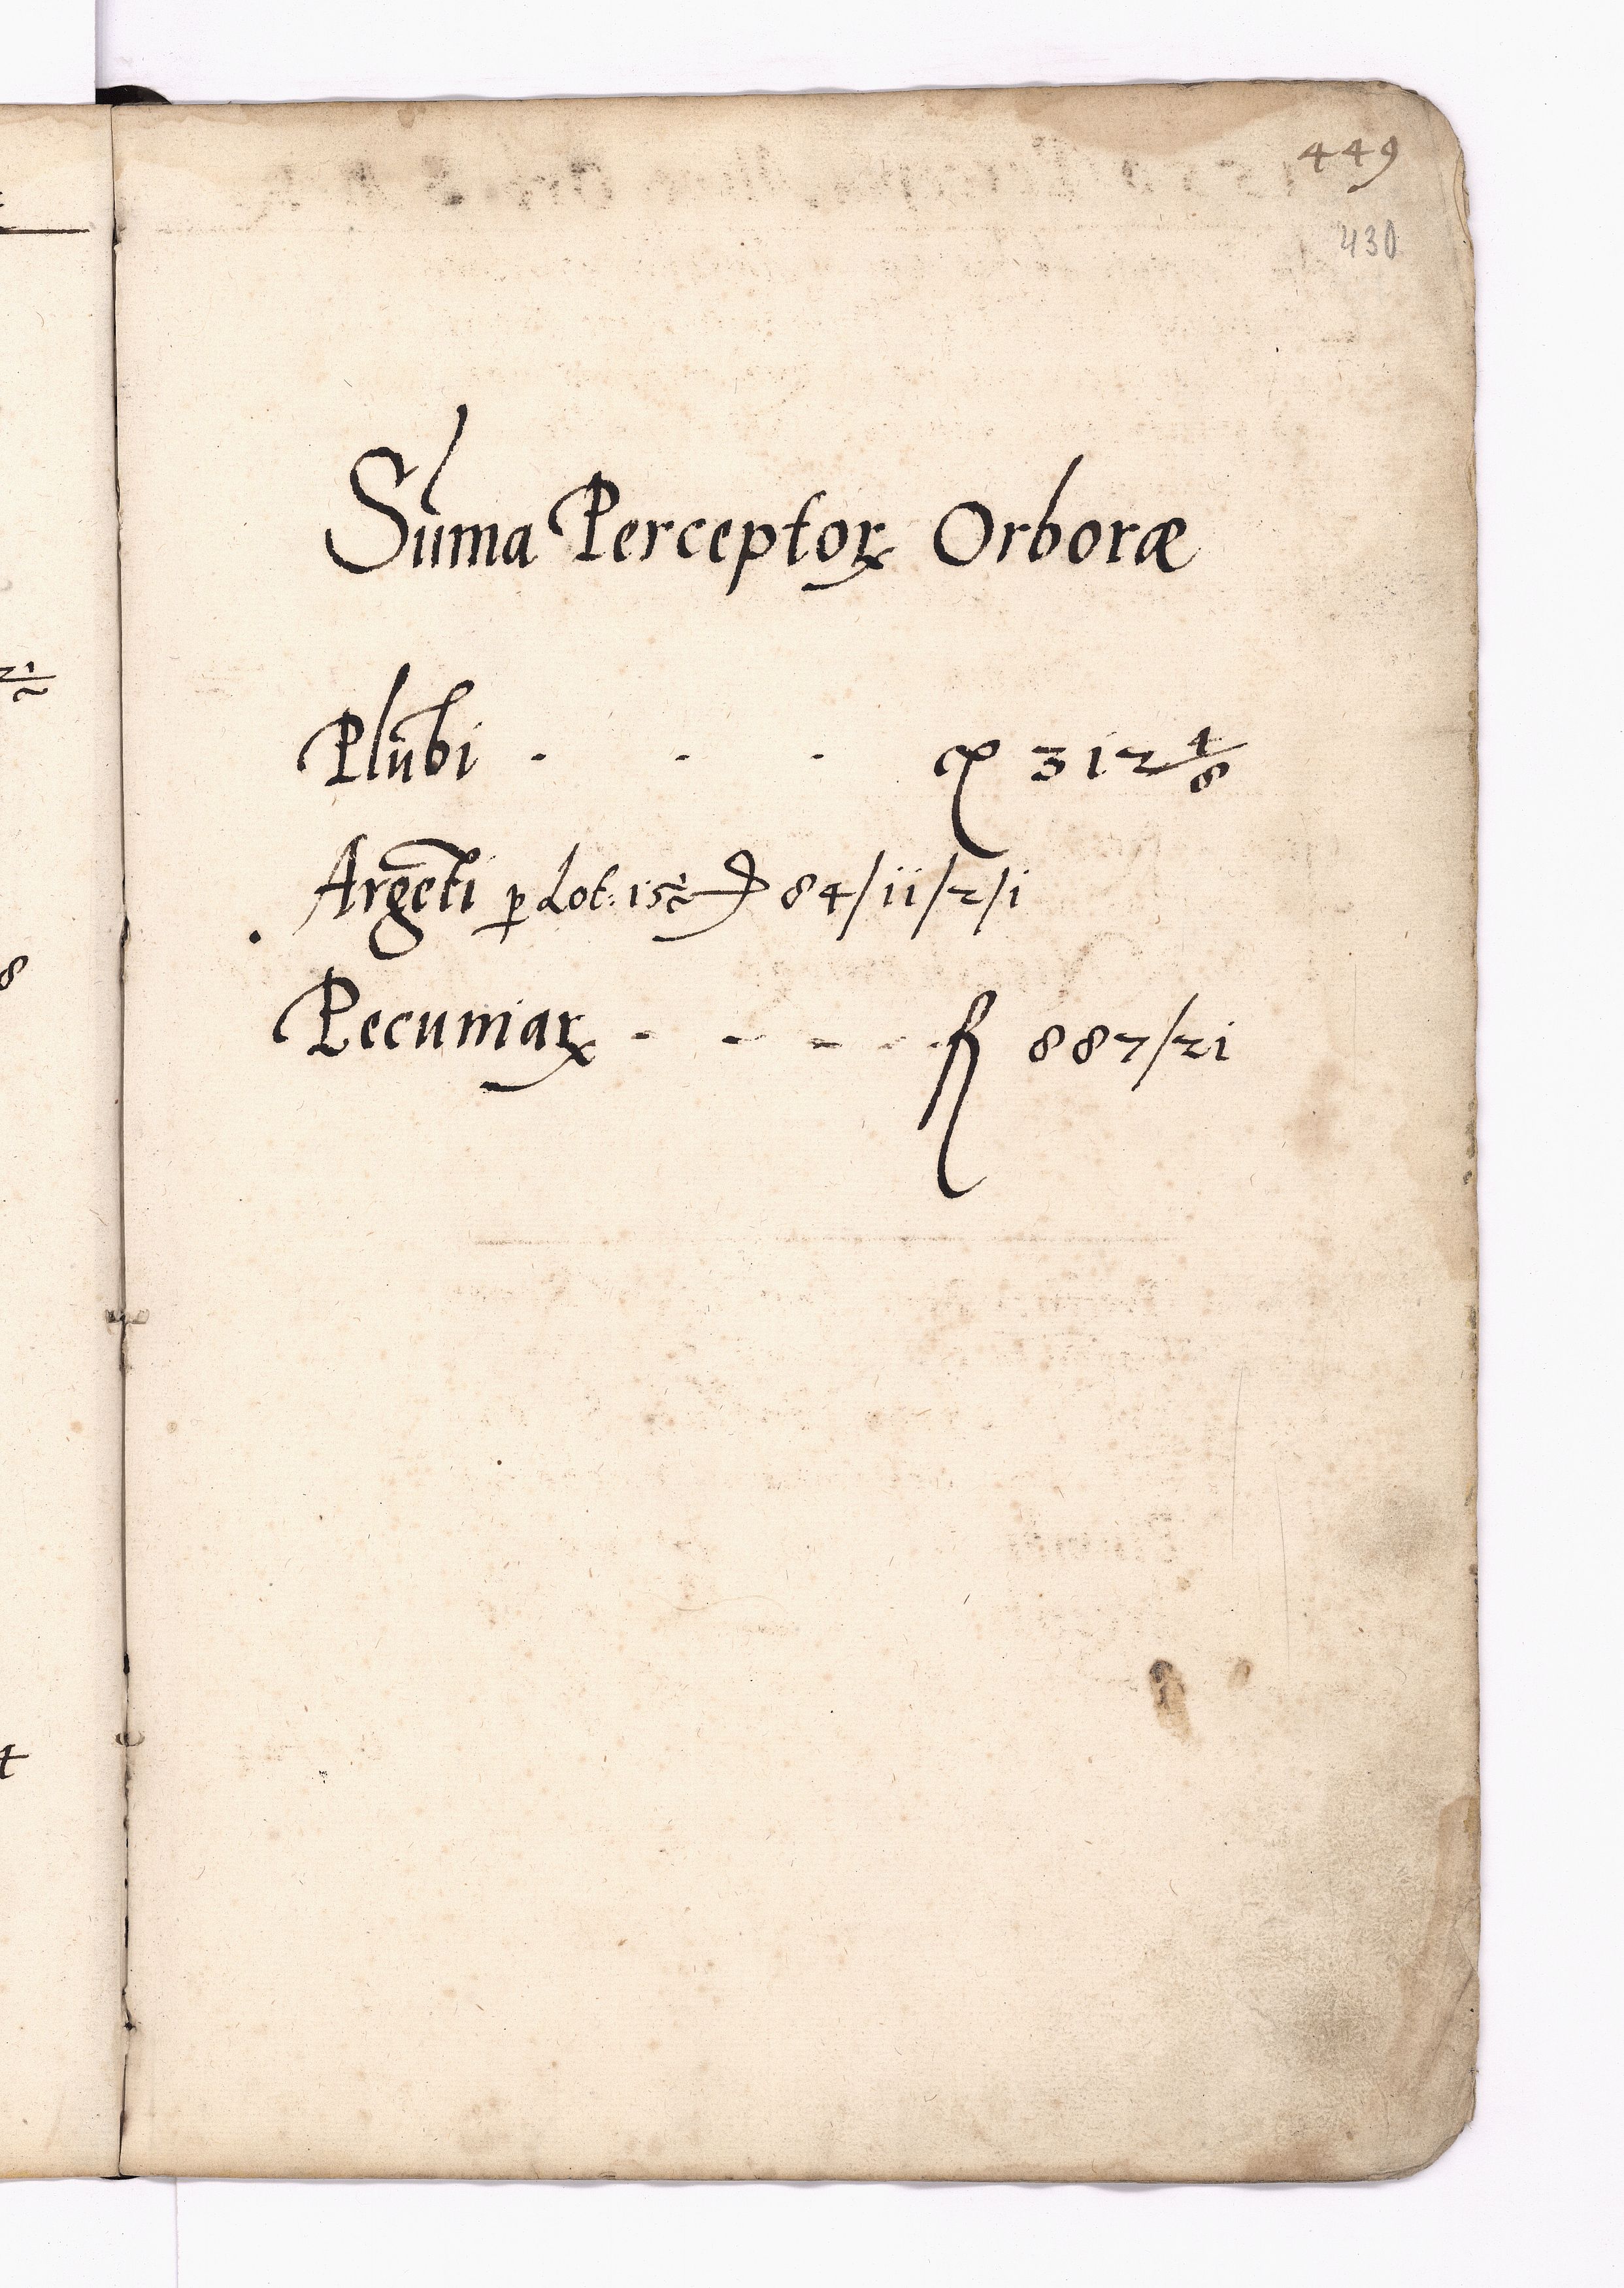 449
430
Sum̄a Perceptoꝝ Orboræ
Plūbi - - - ct 312 1/8
Argēti ꝑ Lot: 15 1/2 mc 84/ii/2/i
Pecuniaꝝ - - - - - fl 887/21